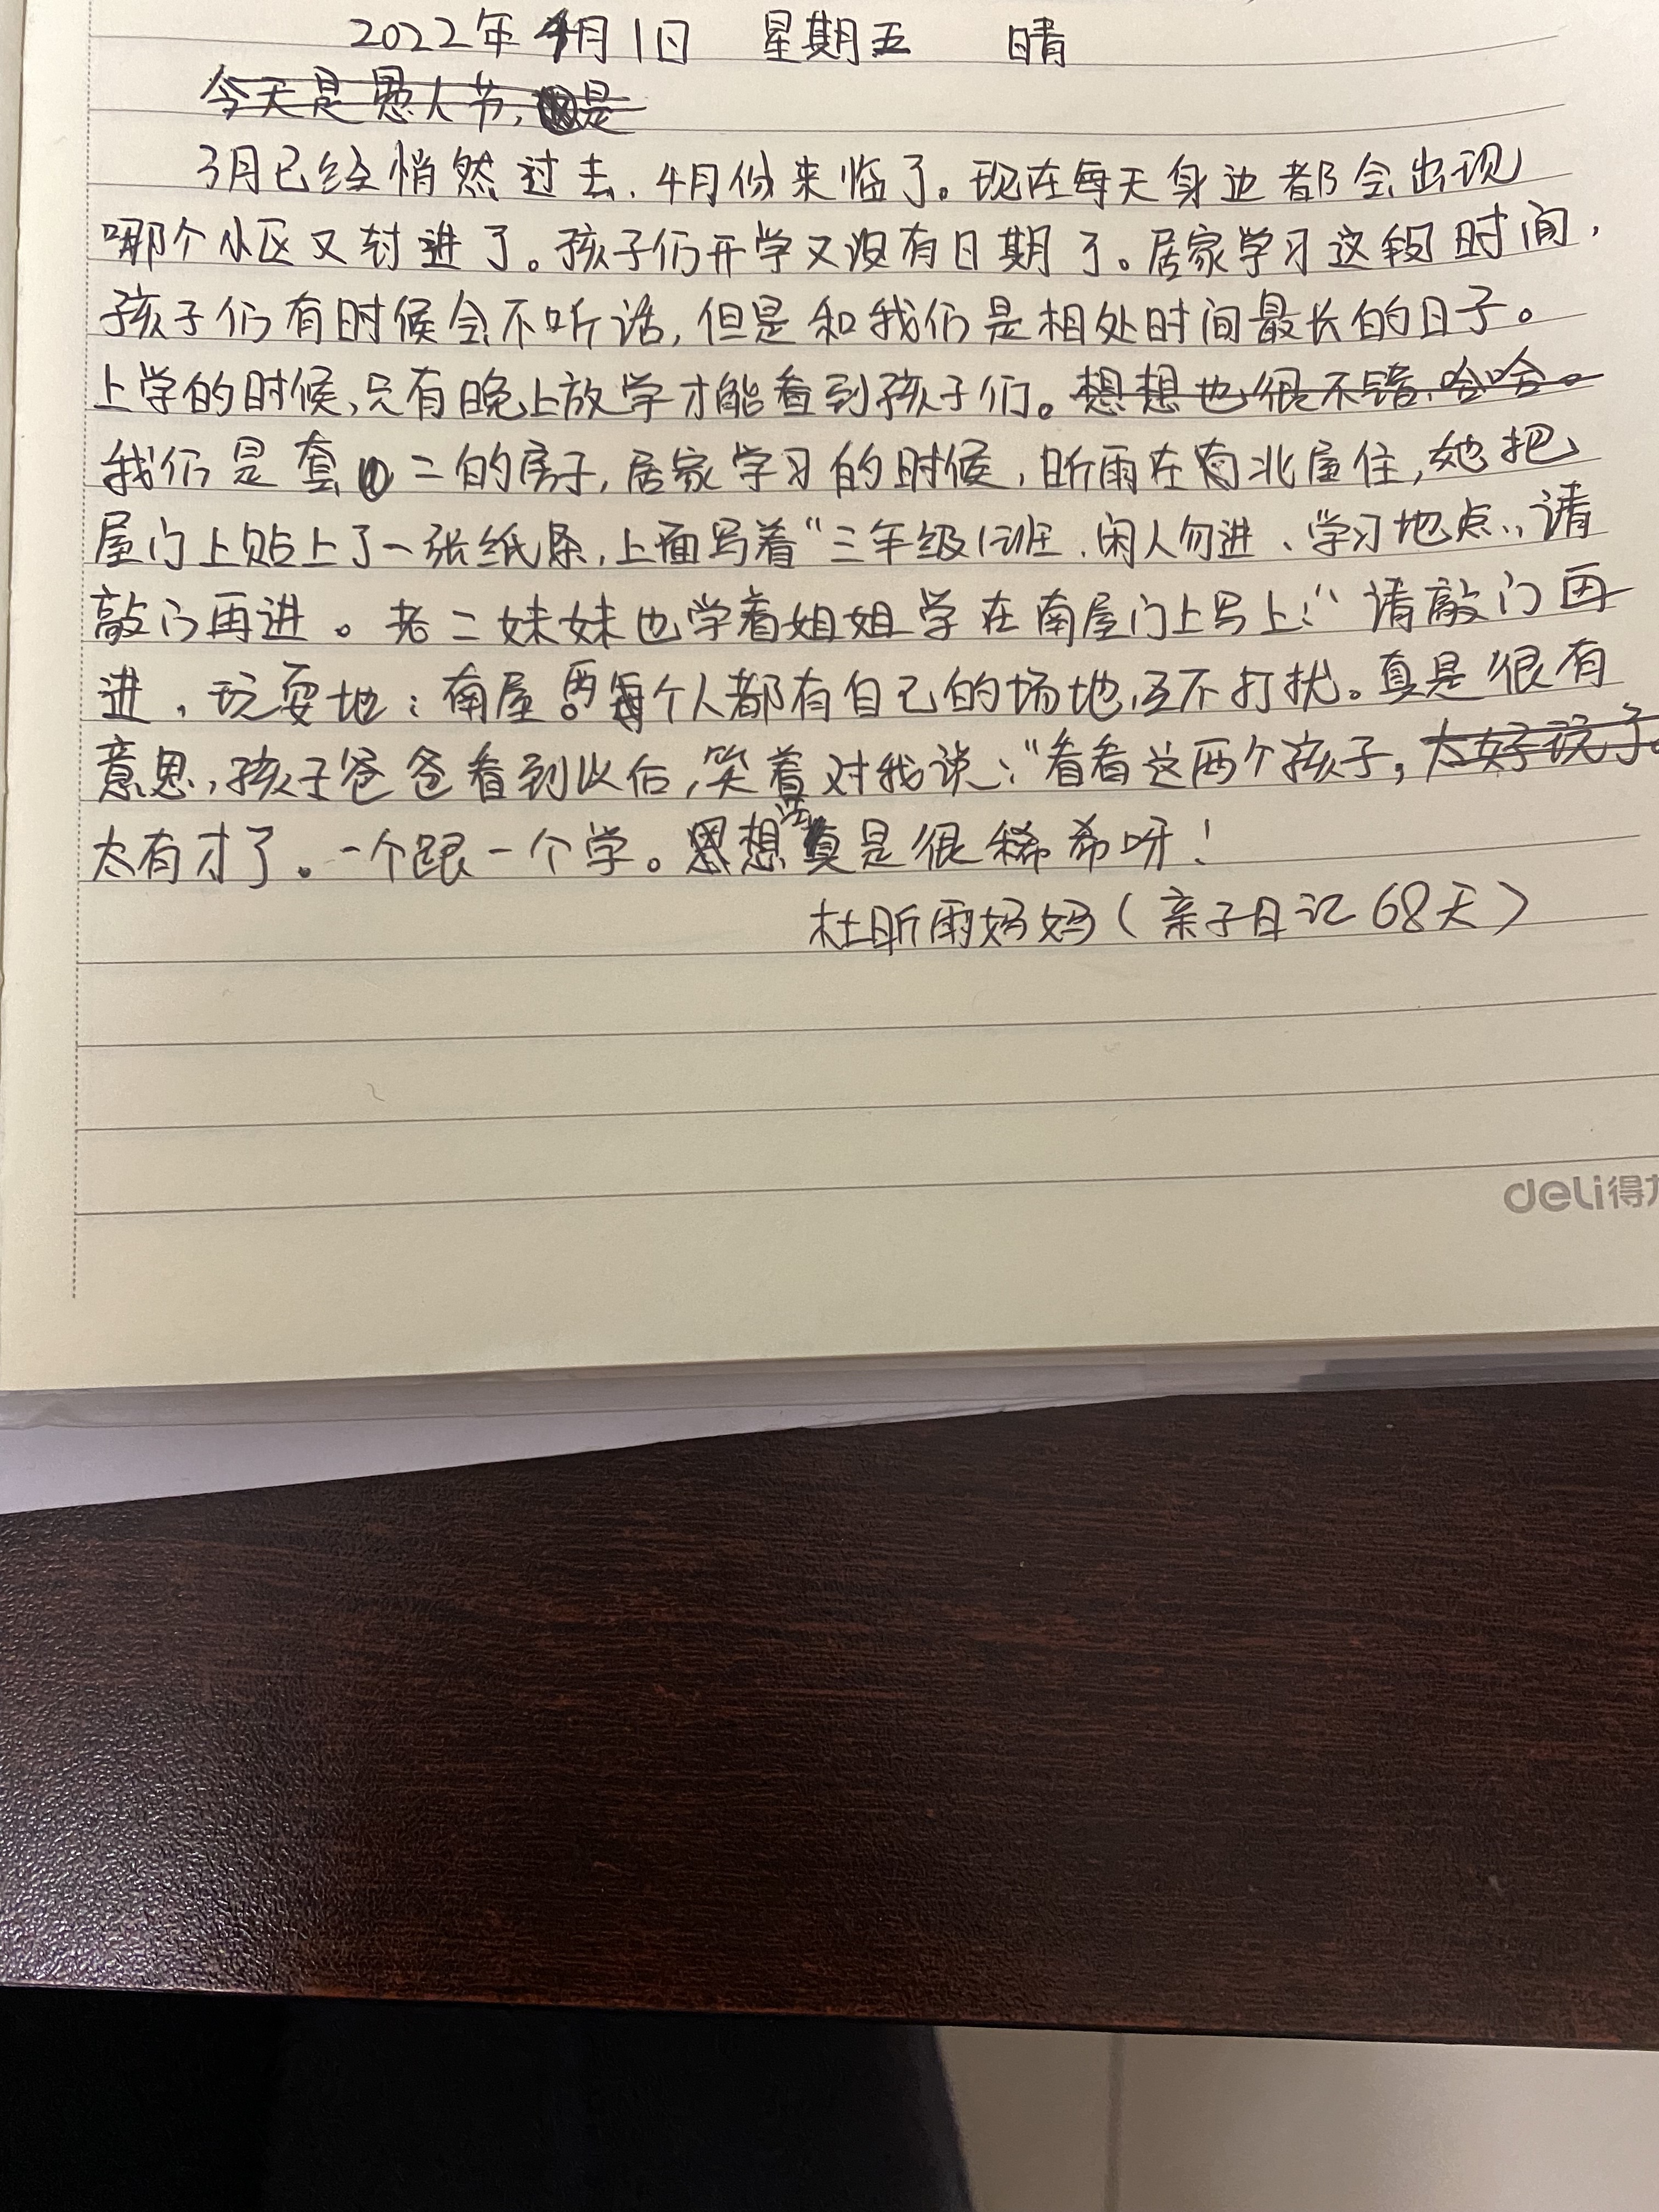 2022年4月1日 星期五 晴
今天是愚人节,是
3月已经悄然过去,4月份来临了。现在每天身边都会出现
哪个小区又封进了。孩子们开学又没有日期了。居家学习这段时间,
孩子们有时候会不听话,但是和我们是相处时间最长的日子。
上学的时候,只有晚上放学才能看到孩子们。想想也很不错,哈哈。
我们是套二的房子,居家学习的时候,昕雨在北屋住,她把
屋门上贴上了一张纸条,上面写着“三年级12班、闲人勿进、学习地点,请
敲门再进。老二妹妹也学着姐姐学在南屋门上写上:“请敲门再
进,玩耍地:南屋。每个人都有自己的场地,互不打扰。真是很有
意思,孩子爸爸看到以后,笑着对我说:“看看这两个孩子,太好玩了。
太有才了。一个跟一个学。想法真是很稀希呀!
杜昕雨妈妈(亲子日记68天)
deli得力